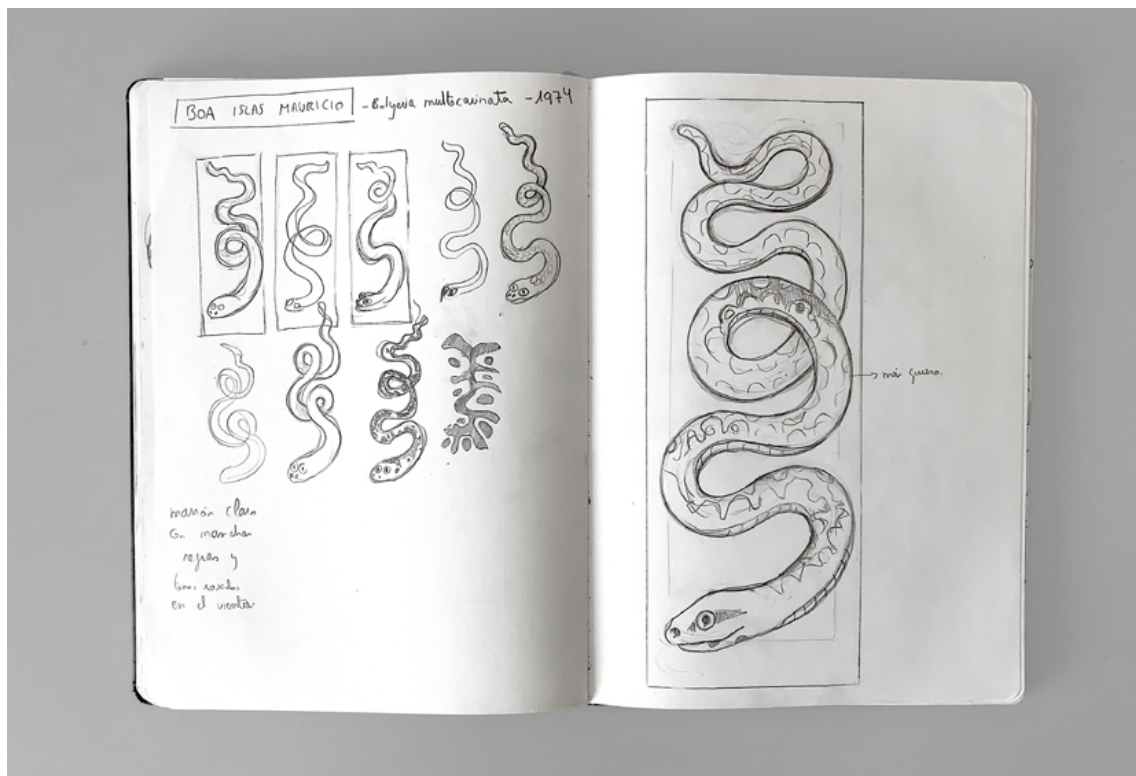 BOA ISLAS MAURICIO - Bolyeria multocarinata - 1974
más gruesa.
marrón claro
Con manchas
negras y
tonos rosados
en el vientre.